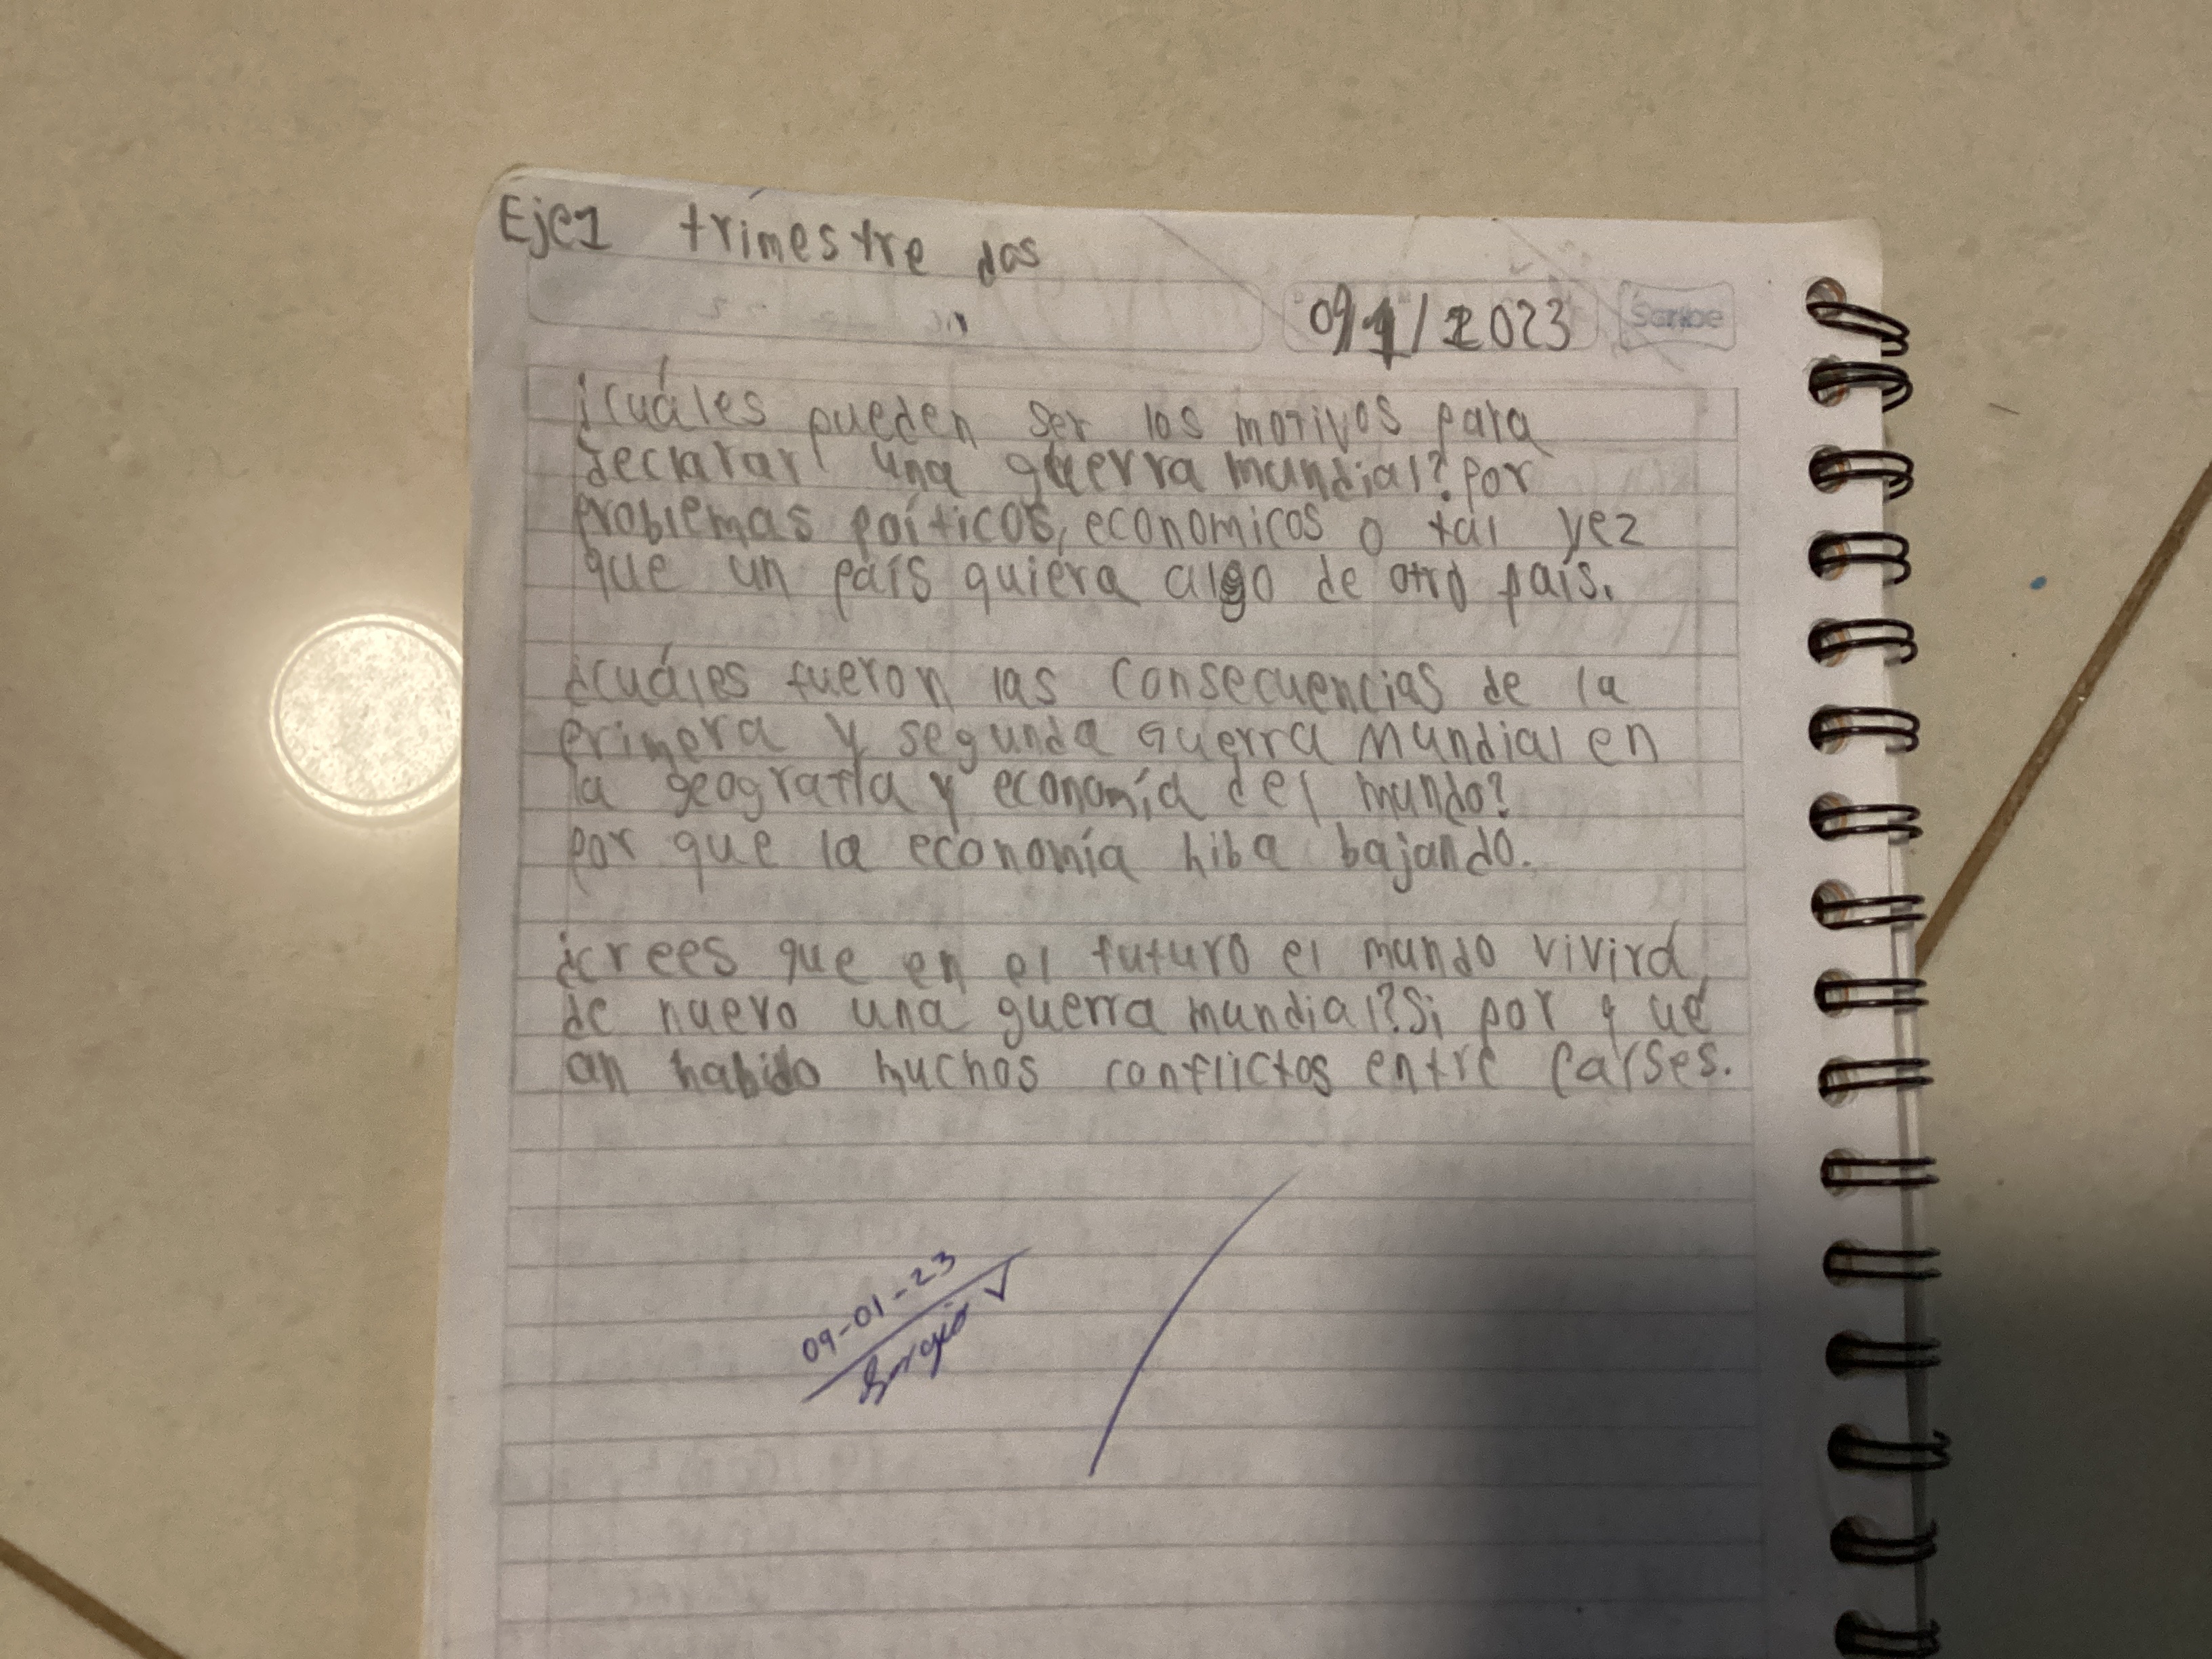 Eje1 trimestre dos
09/1/2023
Scribe
¿cuáles pueden ser los motivos para
declarar una guerra mundial? Por
problemas poíticos, economicos o tal vez
que un país quiera algo de otro país.
¿cuáles fueron las consecuencias de la
primera y segunda Guerra Mundial en
la geografía y economía del mundo?
por que la economía hiba bajando.
¿crees que en el futuro el mundo vivirá
de nuevo una guerra mundial? Si por qué
an habido muchos conflictos entre países.
09-01-23
Sergio